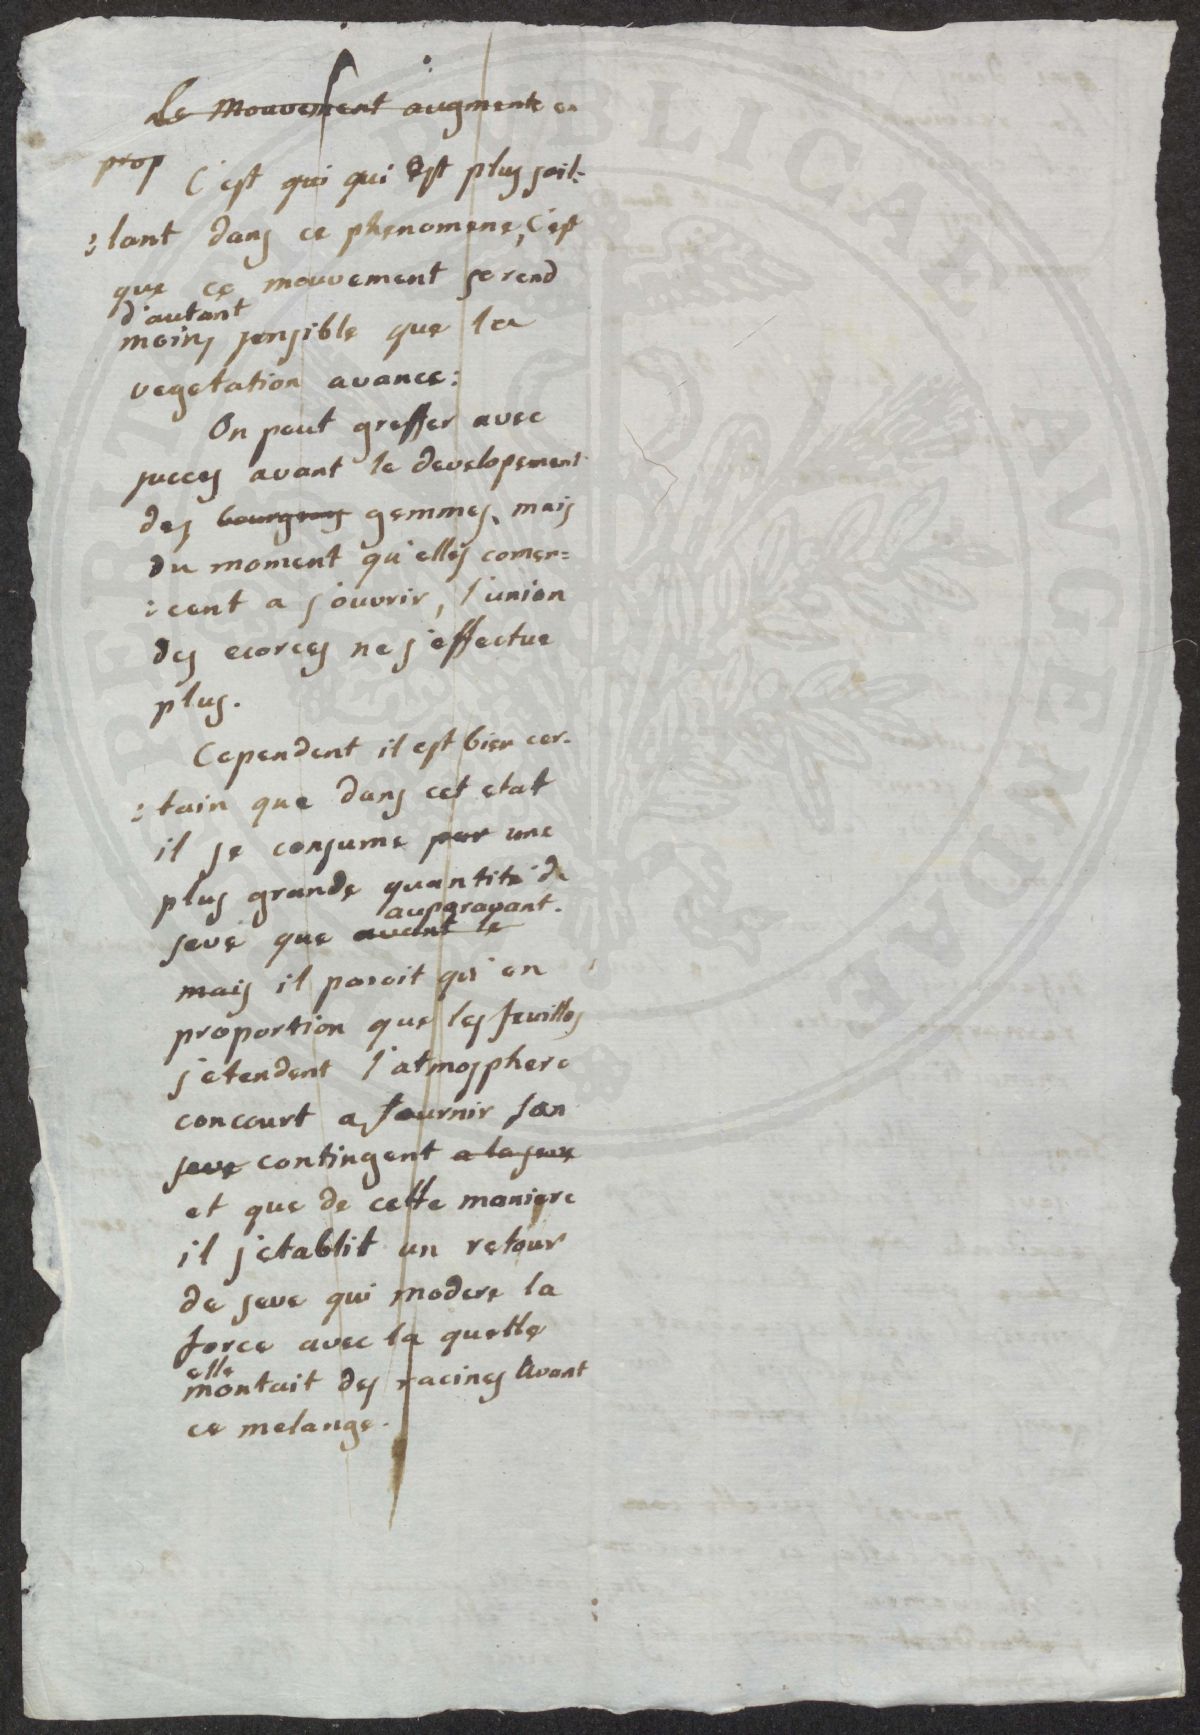 Le Mouvement augmente en
prop
C'est qui qui est plus sail=
=lant dans ce phenomene, c'est
que ce mouvement se rend
d'autant
moins sensible que la
vegetation avance:
On peut greffer avec
succes avant le developement
des bourgeons gemmes, mais
du moment qu'elles comen=
=cent a s'ouvrir, l'union
des ecorces ne s'effectue
plus.
Cependent il est bien cer=
=tain que dans cet etat
il se consume par une
plus grande quantité de
auparavant.
seve que avant le
mais il paroit qu'en
proportion que les feuilles
s'etendent l'atmosphere
concourt a fournir son
seve contingent a la seve
et que de cette maniere
il s'etablit un retour
de seve qui modere la
force avec la quelle
elle
montait des racines avant
ce melange.